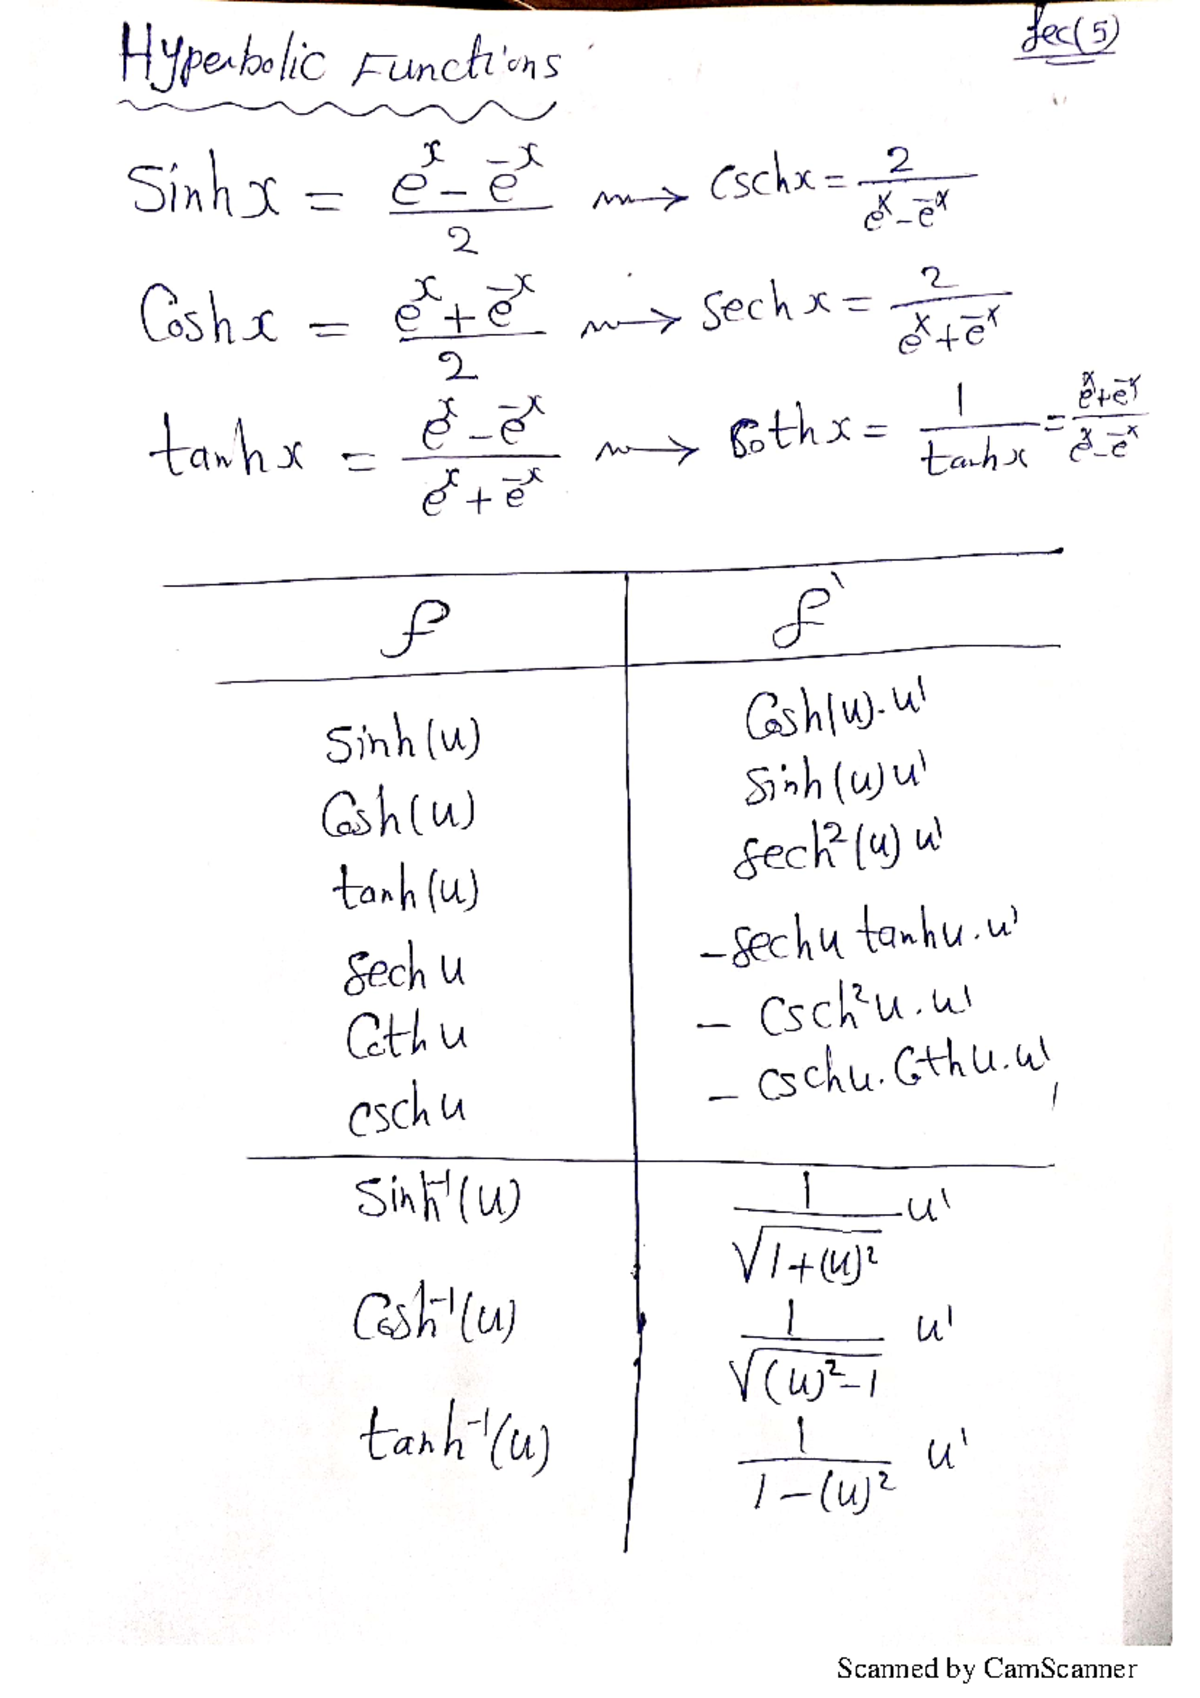 Hyperbolic Functions
Sec(5)
Sinh x = (e^x - e^-x)/2 → Csch x = 2/(e^x - e^-x)
Cosh x = (e^x + e^-x)/2 → Sech x = 2/(e^x + e^-x)
tanh x = (e^x - e^-x)/(e^x + e^-x) → Coth x = 1/tanh x = (e^x + e^-x)/(e^x - e^-x)
f | f'
Sinh(u) | Cosh(u).u'
Cosh(u) | Sinh(u)u'
tanh(u) | Sech²(u)u'
Sech u | -Sech u tanh u.u'
Coth u | - Csch²u.u'
csch u | - csch u.Coth u.u'
Sinh⁻¹(u) | 1/√(1+(u)²) u'
Cosh⁻¹(u) | 1/√((u)²-1) u'
tanh⁻¹(u) | 1/(1-(u)²) u'
Scanned by CamScanner